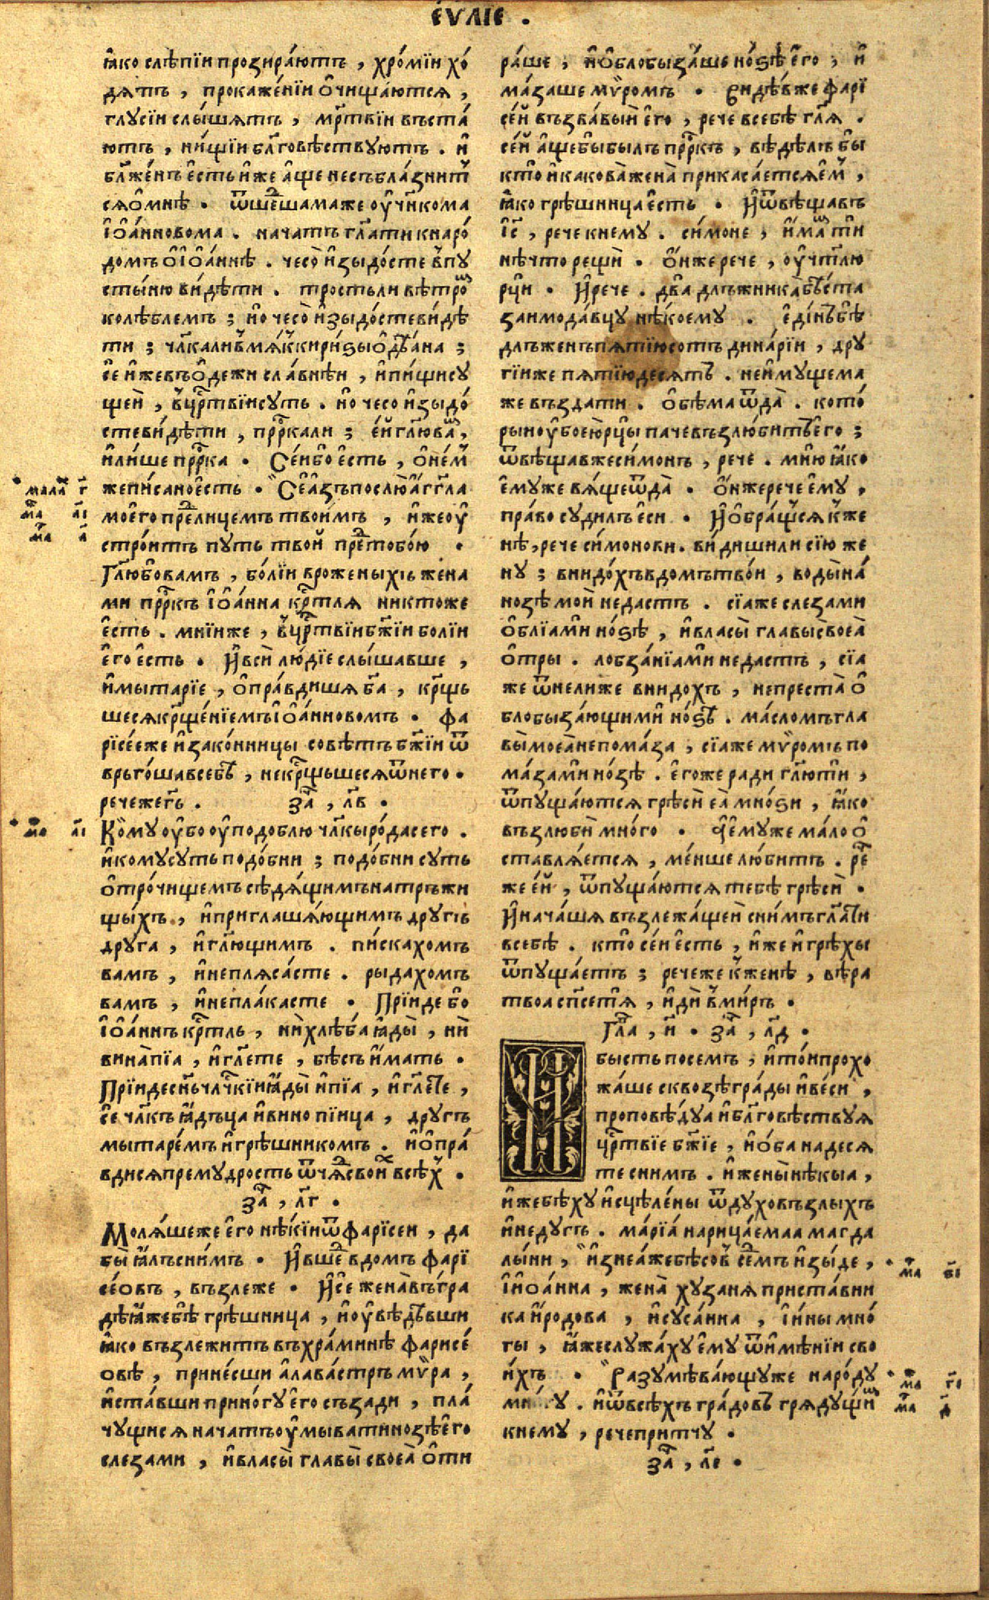 єѵ҃лїе .
ꙗ҆ко слѣпїи прозира́ютъ , хро́мїи хо́
дятъ , прокаже́нїи ѻ҆чища́ются ,
глусїи слы́шятъ , мр҃твїи въста́
ютъ , ни́щїи бл҃говѣствуютъ . и҆
бл҃же́нъ є҆сть и҆же а҆ще несъбла́знит
сяѻ҆мнѣ . ѿше́дшамаже оу҆чн҃кома
і҆ѻа́нновома . начатъ гл҃ати кнаро́
домъ ѻ҆ і҆ѻа́ннѣ . чесо̀ и҆зыдо́сте впу
сты́ню ви́дѣти . тростьли вѣтро
колѣблемъ ; но чесо̀ и҆зыдо́стеви́дѣ
ти ; чл҃калимя́кки ри́зы ѻ҆дѣ́ана ;
се и҆жевъѻ҆де́жи сла́внѣи , и҆пи́щису
щеи҆ , вцр҃твїисуть . но чесо и҆зыдо́
стеви́дѣти , прⷪ҇ркали ; є҆́й гл҃ювам ,
и҆ли́ше прⷪ҇рка . Се́йбо є҆сть , ѻ҆не́м
жепи́сано є҆сть . Се а҆́зъ послю̀ а҆́гг҃ла
моего̀ прⷣелице́мъ твои́мъ , и҆жеоу҆
стро́итъ путь тво́й прⷣетобо́ю .
Гл҃юбовамъ , бо́лїи врожены́хъ жена
ми прⷪ҇ркъ і҆ѻа́нна крⷭ҇тля никтоже
є҆сть . мнїи́же , вцр҃твїибж҃їи болїи
є҆го є҆сть . И҆всѝ лю́дїе слы́шавше ,
и҆мытарїе , ѻ҆пра́вдишя бг҃а , крⷳ҇щь
шесякрⷳ҇щенїемъі҆ѻа́нновомъ . фа
рїсе́еже и҆зако́нницы совѣ́тъ бж҃їи ѿ
врьго́шавсебѣ , некрⷳ҇щьшесяѿнего .
речежегь . за҃ , л҃в .
Кому оу҆бо оу҆подо́блю чл҃кы ро́дасего .
и҆комусуть подо́бни ; подо́бни суть
ѻ҆тро́чищемъ сѣдя́щимъ натръжи
щыхъ , и҆приглаша́ющимъ другъ
друга , и҆гл҃ющимъ . пискахомъ
вамъ , и҆непляса́сте . рыдахомъ
вамъ , и҆непла́касте . Прїи́де бо
і҆ѻа́ннъ крⷭ҇тль , ни хлѣ́ба ꙗ҆ды̀ , ни
вина̀пїа , и҆гл҃ете , бѣ́съ и҆мать .
Прїи́десн҃ъчл҃чкїи ꙗ҆ды̀ и҆пїа , и҆гл҃ете ,
се чл҃къ ꙗ҆дъца и҆вино пїица , другъ
мытаре́мъ и҆грѣшникомъ . и҆ѻ҆пра́
вдися прему́дрость ѿчядъ свои́х всѣ́х .
за҃ , л҃г .
Моля́шеже є҆го нѣ́кїиѿ фарїсеи , да
бы ꙗ҆лъ сни́мъ . И҆вшед вдомъ фарї
се́овъ , възлеже . И҆се жена̀въгра
дѣ ꙗ҆жебѣ̀ грѣшница , и҆оу҆вѣ́дѣвши
ꙗ҆ко възлежитъ въхра́минѣ фарисе́
овѣ , прине́сши а҆лава́стръ мѵ́ра ,
и҆ста́вши приногу є҆го съза́ди , пла́
чущися начатъ оу҆мыватинозѣ є҆го
слезами , и҆власы̀ главы̀ своеа̀ ѻ҆ти
ра́ше ; и҆ѻ҆блобыза́ше но́зѣ є҆го ; и҆
ма́заше мѵ́ромъ . видѣ́вже фарї
се́й възва́вый є҆го , рече всебѣ гл҃я .
се́й а҆щебы былъ прⷪ҇ркъ , вѣ́дѣлъ бы
кто̀ и҆какова̀жена̀ прикаса́етсяє҆м ,
ꙗ҆ко грѣшница є҆сть . И҆ѿвѣща́въ
і҆с҃ , рече кнему . си́моне , и҆́мамъ ти
нѣ́что рещѝ . ѻ҆нже рече , оу҆чт҃лю
рци . И҆рече . два̀ длъжника̀бѣста
заимода́вцу нѣ́коему . є҆ди́нъбѣ̀
длъженъ пятїюсотъ дина́рїи , дру
гїиже пятїюдесятъ . неи҆мущема
же възда́ти . ѻ҆бѣма ѿда̀ . кото́
рыи оу҆бо ею̀ рцы паче възлюбитъ є҆го ;
ѿвѣща́вже си́монъ , рече . мню ꙗ҆ко
є҆муже вя́щеѿда̀ . ѻ҆́нжерече є҆му ,
пра́во судилъ є҆си . И҆ѻ҆бра́щься кже
нѣ̀ , рече си́монови . ви́диши ли сїю же
ну ; внидо́хъ вдомъ тво́и , воды̀на
нозѣ мои̑ недастъ . сїаже слезами
ѻ҆блїа́ми но́зѣ , и҆власы̀ главы̀своеа̀
ѻ҆тры . лобза́нїами недастъ , сїа
же ѿнелиже внидохъ , непреста̀ ѻ҆
блобыза́ющими но́зѣ . ма́сломъ гла
вы̀моеа̀непома́за , сїаже мѵ́ромъ по
ма́зами но́зѣ . є҆гоже ради гл҃ юти ,
ѿпуща́ются грѣсѝ є҆а̀ мно́зи , ꙗ҆ко
възлюбѝ мно́го . А҆є҆муже ма́ло ѻ҆
ставляется , ме́нше лю́битъ . ре
же є҆́й , ѿпуща́ются тебѣ грѣсѝ .
И҆нача́шя възлежа́щеи сни́мъ гл҃ати
всебѣ . кто̀ се́й є҆сть , и҆же и҆ грѣхы
ѿпуща́етъ ; речеже кженѣ , вѣ́ра
твоа сп҃сетя , и҆дѝ вми́ръ .
Гл҃ва , и҃ . за҃ , л҃д .
И бысть посемъ , и҆то́и прохо
жа́ше сквозѣ гра́ды и҆ве́си ,
проповѣ́дуа и҆бл҃говѣствуя
цр҃твїе бж҃їе , и҆ѻ҆ба надеся
те снимъ . и҆жены̀нѣкыа ,
и҆жебѣ́ху и҆сцѣле́ны ѿдуховъ злыхъ
и҆неду́гъ . марїа̀ нарица́емаа магда
лы́ни , и҆знеа́жебѣсов се́дмъ и҆зы́де ,
і҆ і҆ѻа́нна , жена̀ хузаня приставни
ка и҆́родова , и҆суса́нна , і҆ и҆́ны мно́
гы , ꙗ҆жеслужа́ху є҆му ѿи҆мѣ́нїи сво
и҆хъ . Разумѣва́ющуже наро́ду
мно́гу . и҆ѿвсѣхъ градовъ гряду́щим
кнему , речепритчу .
за҃ , л҃е .
мала г҃
мѳ а҃і
мр а҃
мѳ а҃і
мѳ в҃і
мѳ г҃і
мр д҃